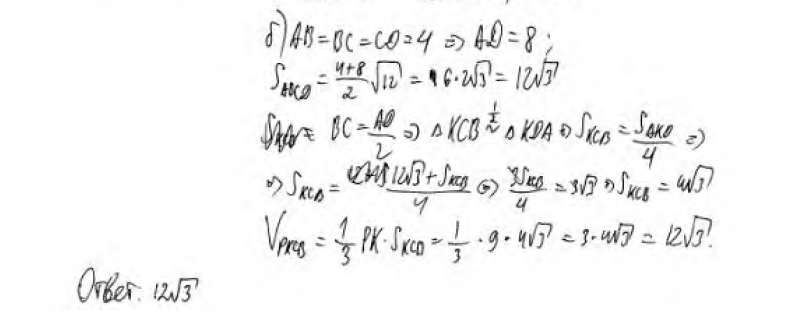 б) AB=BC=CD=4 ⇒ AD=8;
S_ABCD = (4+8)/2 √12 = 6·2√3 = 12√3
BC = AD/2 ⇒ △KCB ~^(1/2) △KDA ⇒ S_KCB = S_AKD/4 ⇒
⇒ S_KCB = (12√3 + S_KCB)/4 ⇒ 3S_KCB/4 = 3√3 ⇒ S_KCB = 4√3
V_PKCB = 1/3 PK·S_KCB = 1/3 · 9 · 4√3 = 3·4√3 = 12√3.
Ответ: 12√3